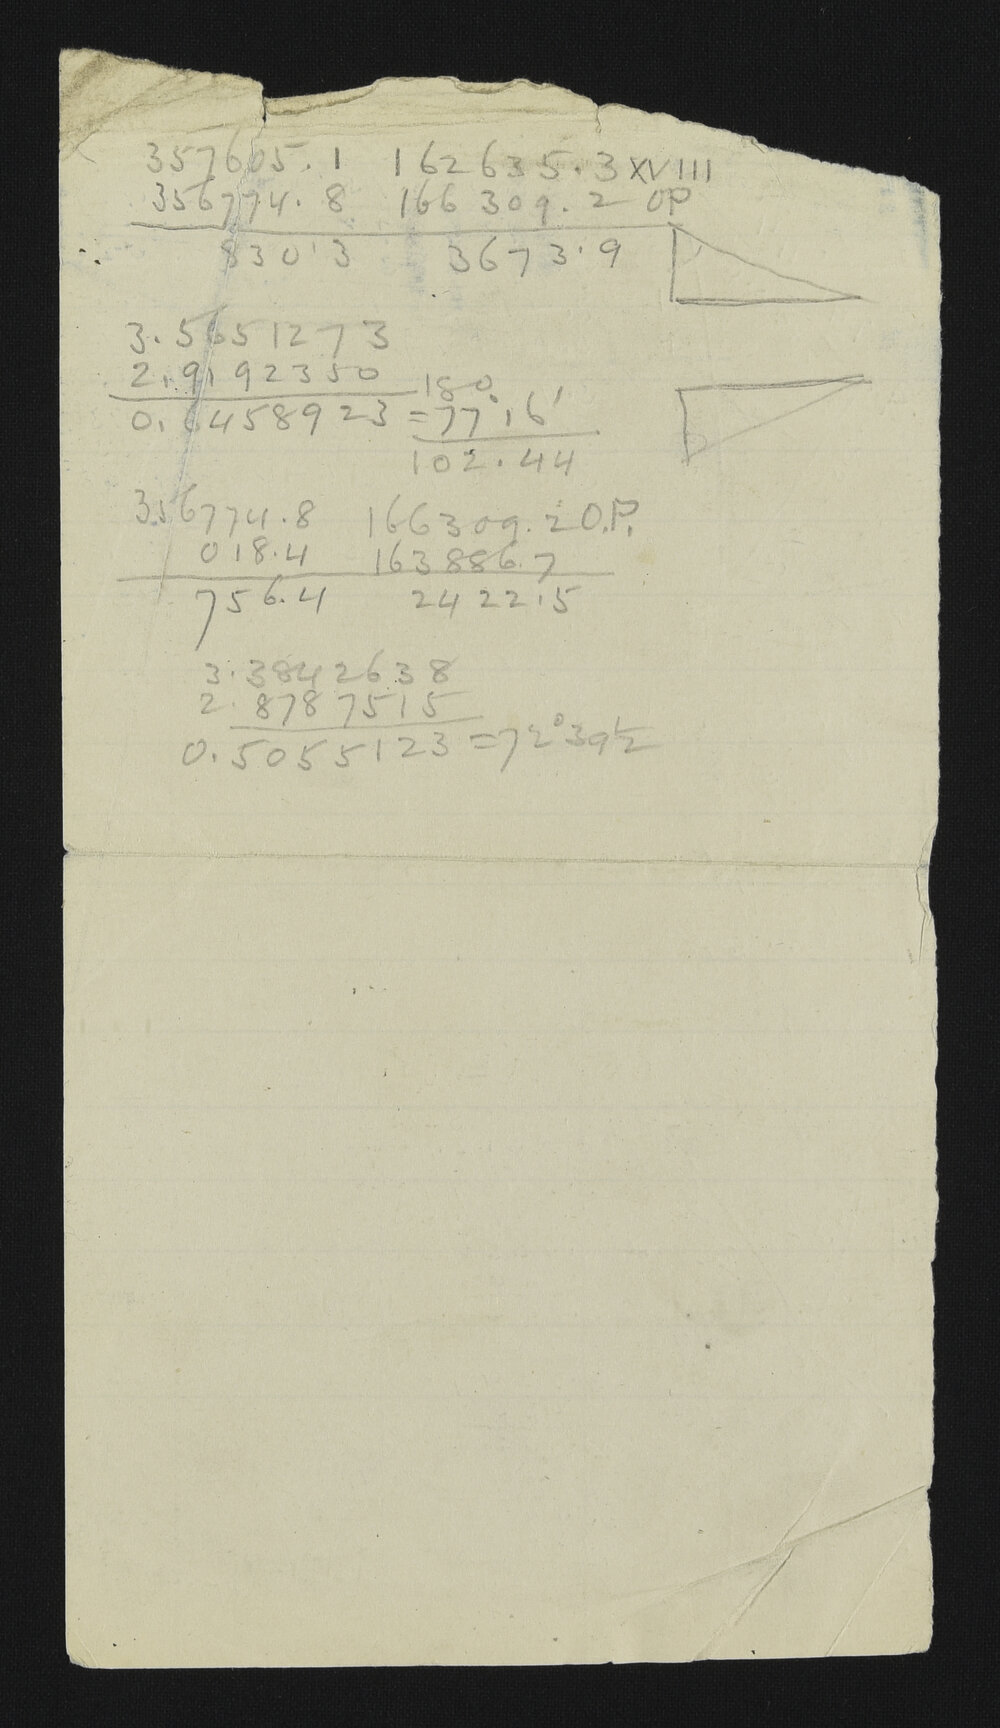 357605.1 162635.3 XVIII
356774.8 166309.2 OP
830.3 3673.9
3.5651273
2.9192350 180°
0.6458923 = 77°.16'
102.44
356774.8 166309.2 O.P.
018.4 163886.7
756.4 2422.5
3.3842638
2.8787515
0.5055123 = 72°39½